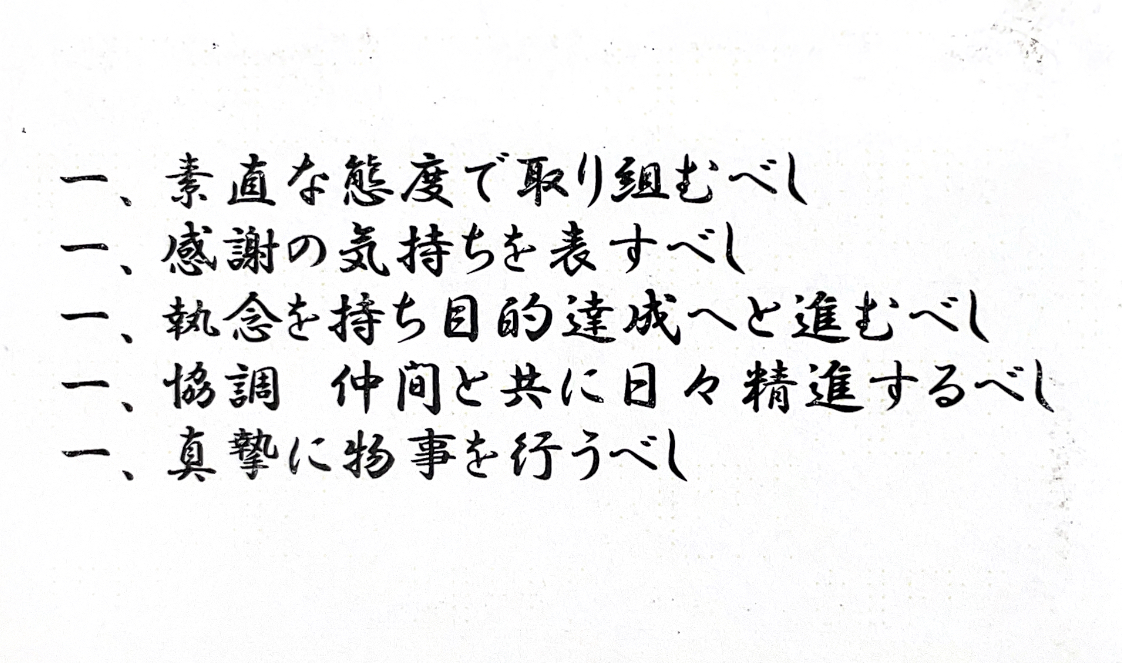 一、素直な態度で取り組むべし
一、感謝の気持ちを表すべし
一、執念を持ち目的達成へと進むべし
一、協調　仲間と共に日々精進するべし
一、真摯に物事を行うべし